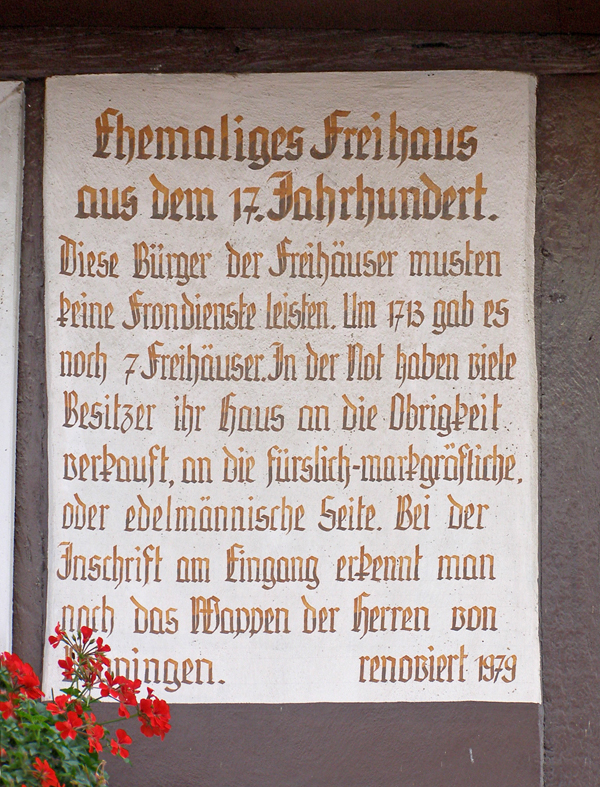 Ehemaliges Freihaus
aus dem 17. Jahrhundert.
Diese Bürger der Freihäuser musten
keine Frondienste leisten. Um 1713 gab es
noch 7 Freihäuser. In der Not haben viele
Besitzer ihr Haus an die Obrigkeit
verkauft, an die fürslich-markgräfliche,
oder edelmännische Seite. Bei der
Inschrift am Eingang erkennt man
noch das Wappen der Herren von
renoviert 1979